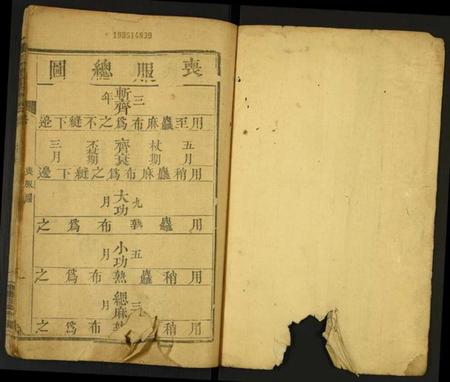 喪服總圖
三斬齊年
用至麤麻布爲之不縫下邊
五月杖期齊衰不杖期三月
用稍麤麻布爲之縫下邊
九大功月
用麤熟布爲之
五小功月
用稍麤熟布爲之
三緦麻月
用稍熟布爲之
喪服圖